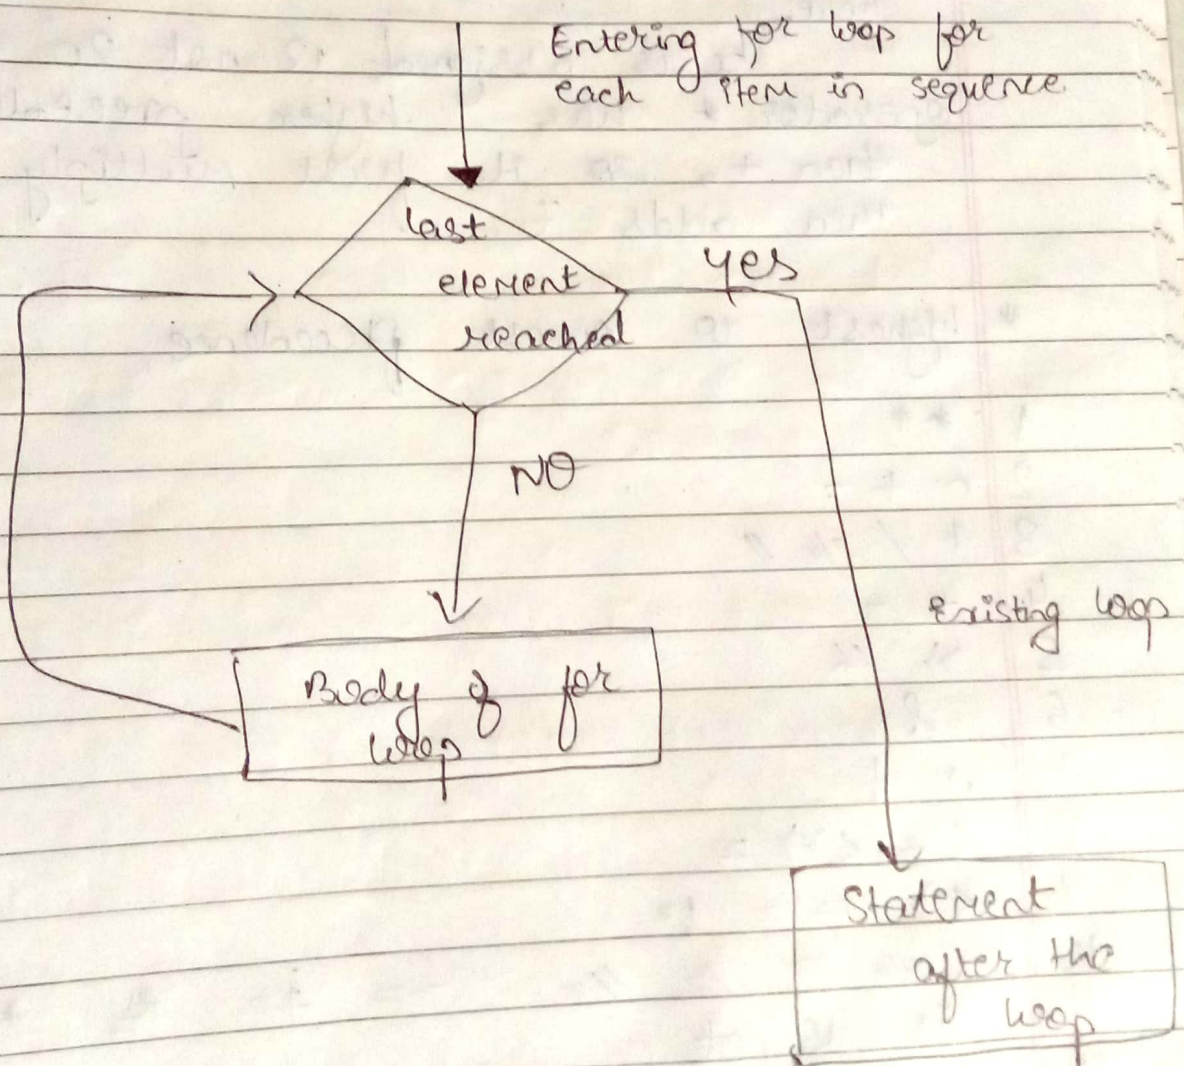 Entering for loop for
each item in sequence
last
element
reached
yes
NO
Existing loop
Body of for
loop
Statement
after the
loop